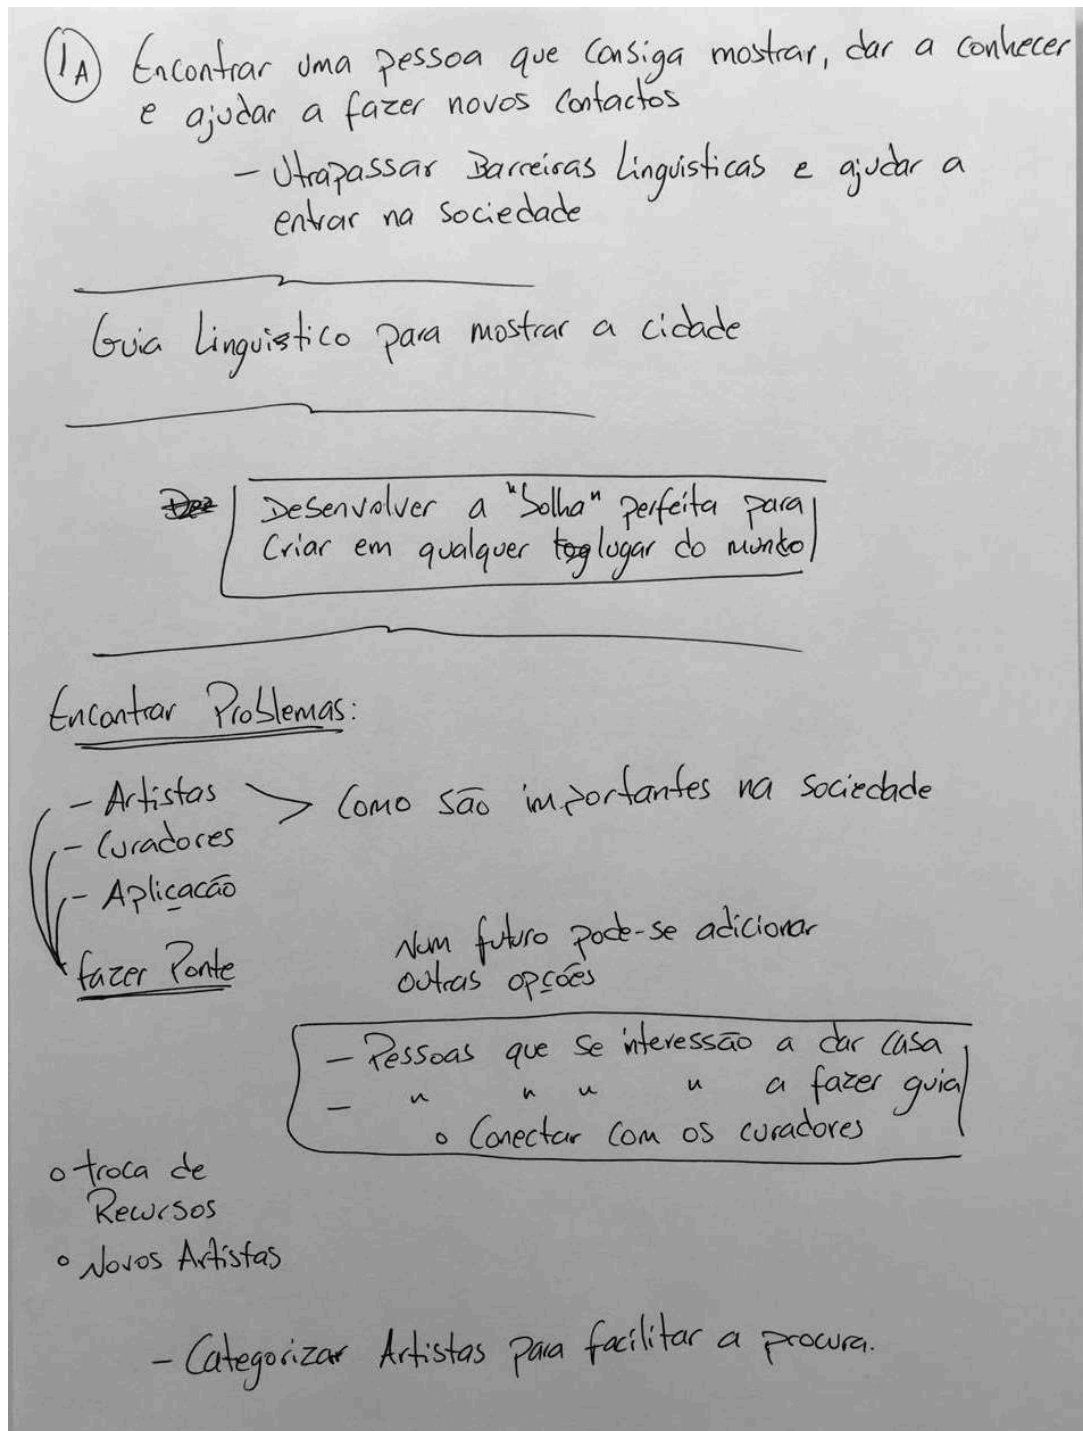 1A Encontrar uma pessoa que consiga mostrar, dar a conhecer
e ajudar a fazer novos contactos
- Utrapassar Barreiras Linguisticas e ajudar a
entrar na sociedade
Guia Linguistico para mostrar a cidade
Desenvolver a "bolha" perfeita para
Criar em qualquer lugar do mundo
Encontrar Problemas:
- Artistas > Como são importantes na sociedade
- Curadores
- Aplicação
fazer Ponte
Num futuro pode-se adicionar
outras opções
- Pessoas que se interessão a dar casa
- " " " " a fazer guia
o Conectar com os curadores
o troca de
Recursos
o Novos Artistas
- Categorizar Artistas para facilitar a procura.